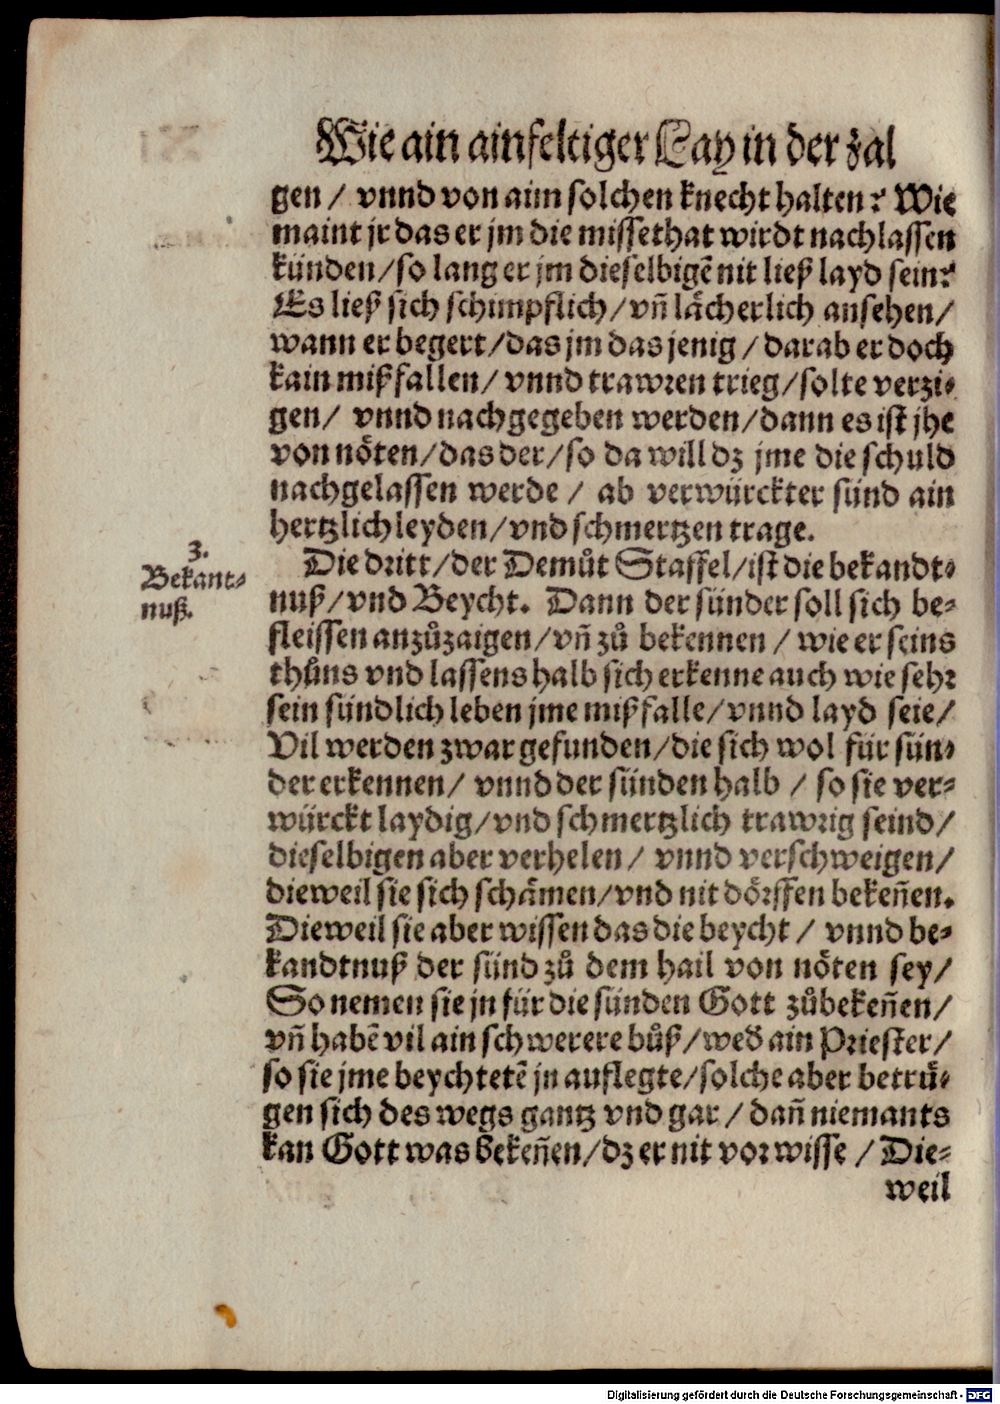 Wie ain ainfeltiger Lay in der zal
gen / vnnd von aim solchen knecht halten? Wie
maint jr das er jm die missethat wirdt nachlassen
künden/so lang er jm dieselbigẽ nit ließ layd sein?
Es ließ sich schimpflich/vñ lächerlich ansehen/
wann er begert/das jm das jenig/darab er doch
kain mißfallen/vnnd trawren trieg/solte verzi-
gen/ vnnd nachgegeben werden/dann es ist jhe
von nöten/das der/so da will dz jme die schuld
nachgelassen werde / ab verwürckter sünd ain
hertzlich leyden/vnd schmertzen trage.
3.
Bekant-
nuß.
Die dritt/der Demůt Staffel/ist die bekandt-
nuß/vnd Beycht. Dann der sünder soll sich be-
fleissen anzůzaigen/vñ zů bekennen / wie er seins
thůns vnd lassens halb sich erkenne auch wie sehr
sein sündlich leben jme mißfalle/vnnd layd seie/
Vil werden zwar gefunden/die sich wol für sün-
der erkennen/ vnnd der sünden halb / so sie ver-
würckt laydig/vnd schmertzlich trawrig seind/
dieselbigen aber verhelen/ vnnd verschweigen/
dieweil sie sich schämen/vnd nit dörffen bekeñen.
Dieweil sie aber wissen das die beycht / vnnd be-
kandtnuß der sünd zů dem hail von nöten sey/
So nemen sie jn für die sünden Gott zůbekeñen/
vñ habẽ vil ain schwerere bůß/wed ain Priester/
so sie jme beychtetẽ jn auflegte/solche aber betrü-
gen sich des wegs gantz vnd gar / dañ niemants
kan Gott was bekeñen/dz er nit vor wisse / Die-
weil
Digitalisierung gefördert durch die Deutsche Forschungsgemeinschaft - DFG